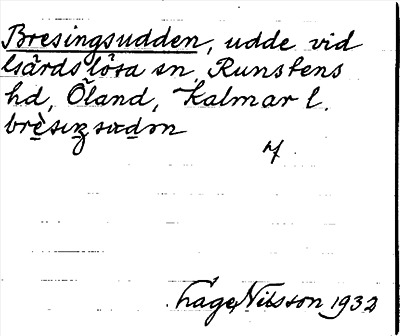 Bresingsudden, udde vid
Gårdslösa sn, Runstens
hd, Öland, Kalmar l.
Hage Nilsson 1932